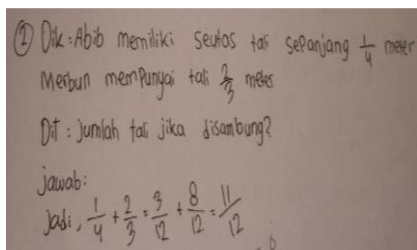 ① Dik : Abib memiliki seutas tali sepanjang 1/4 meter
Meibun mempunyai tali 2/3 meter
Dit : jumlah tali jika disambung?
jawab:
jadi, 1/4 + 2/3 = 3/12 + 8/12 = 11/12